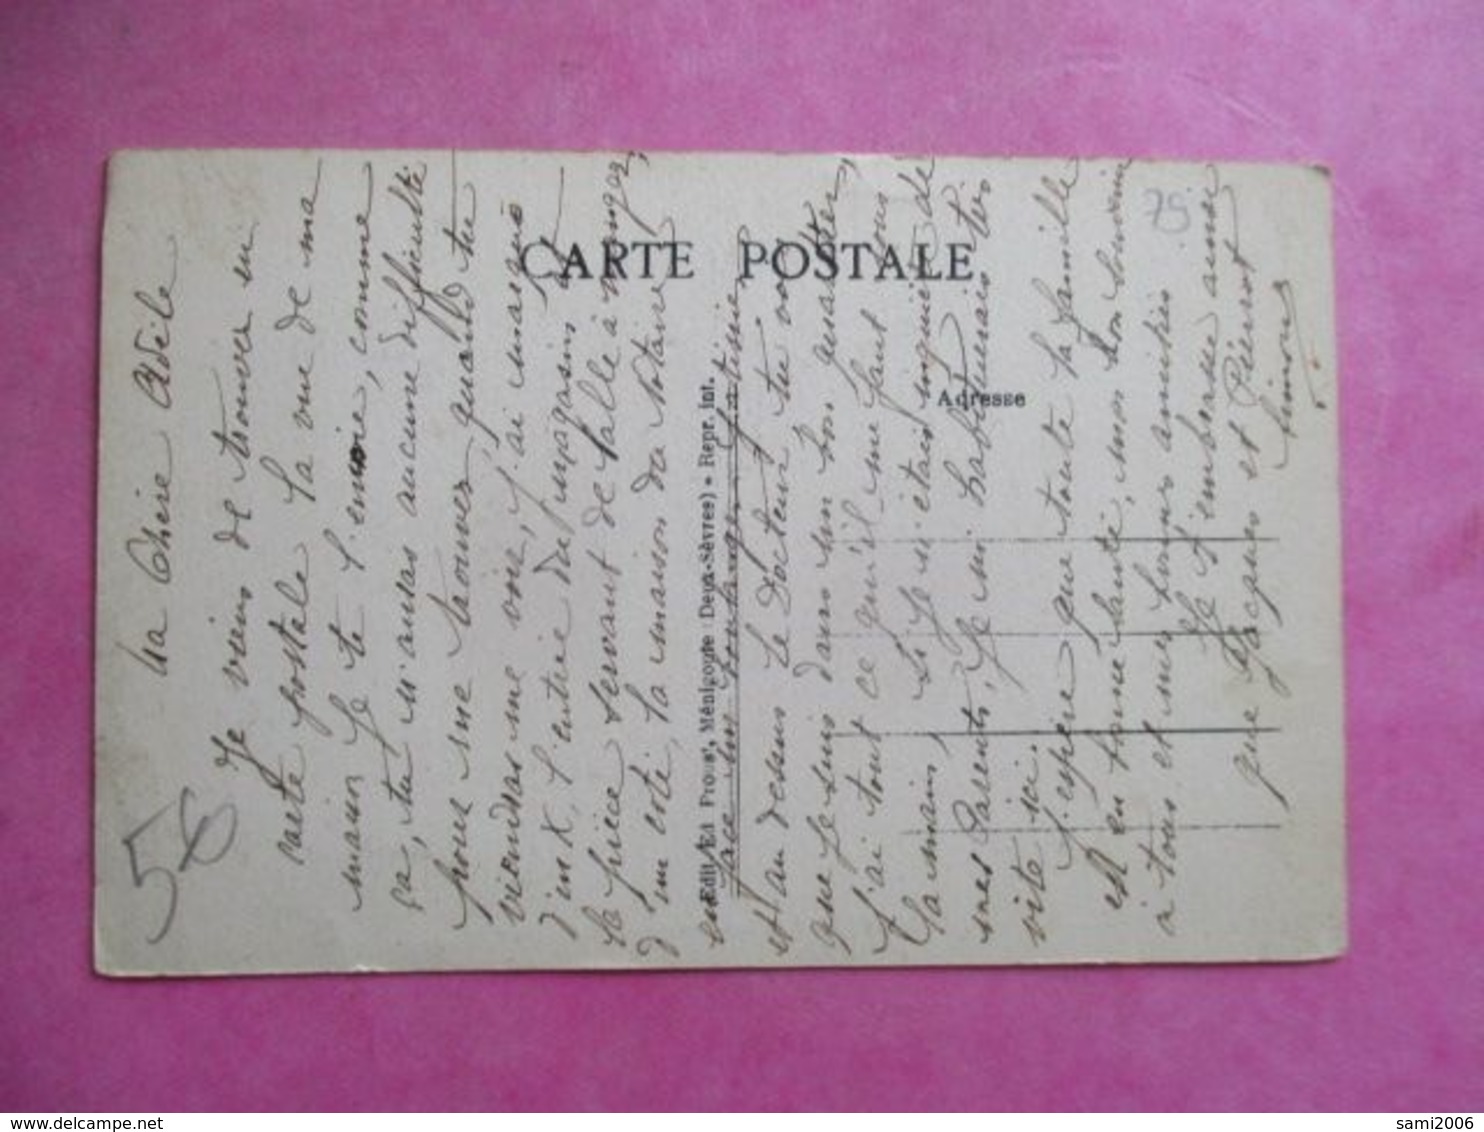 CARTE POSTALE
Adresse
Edit. Ed Proust, Ménigoute Deux-Sèvres) - Repr. int.
75
56
Ma Chère Adile
Je viens de trouver ici
carte postale la vue de ma
maison Je te l'envoie, comme
ça, tu n'auras aucune difficulté
pour me trouver, quand tu
viendras me voir, j'ai marqué
d'un X l'entrée du magasin et
la pièce servant de salle à manger,
d'un coté, la maison du Notaire
en face un
et au dessus le Docteur tu vois
que Je suis dans un bon quartier,
j'ai tout ce qu'il me faut sous
la main, si Je n'étais inquiète de
mes Parents, Je m'habituerais très
vite ici.
J'espère que toute la famille
est en bonne santé, mon bon souvenir
à tous et mes bonnes amitiés
Je t'embrasse ainsi
que Jacques et Pierrot
Simone
delcampe.net
sami2006